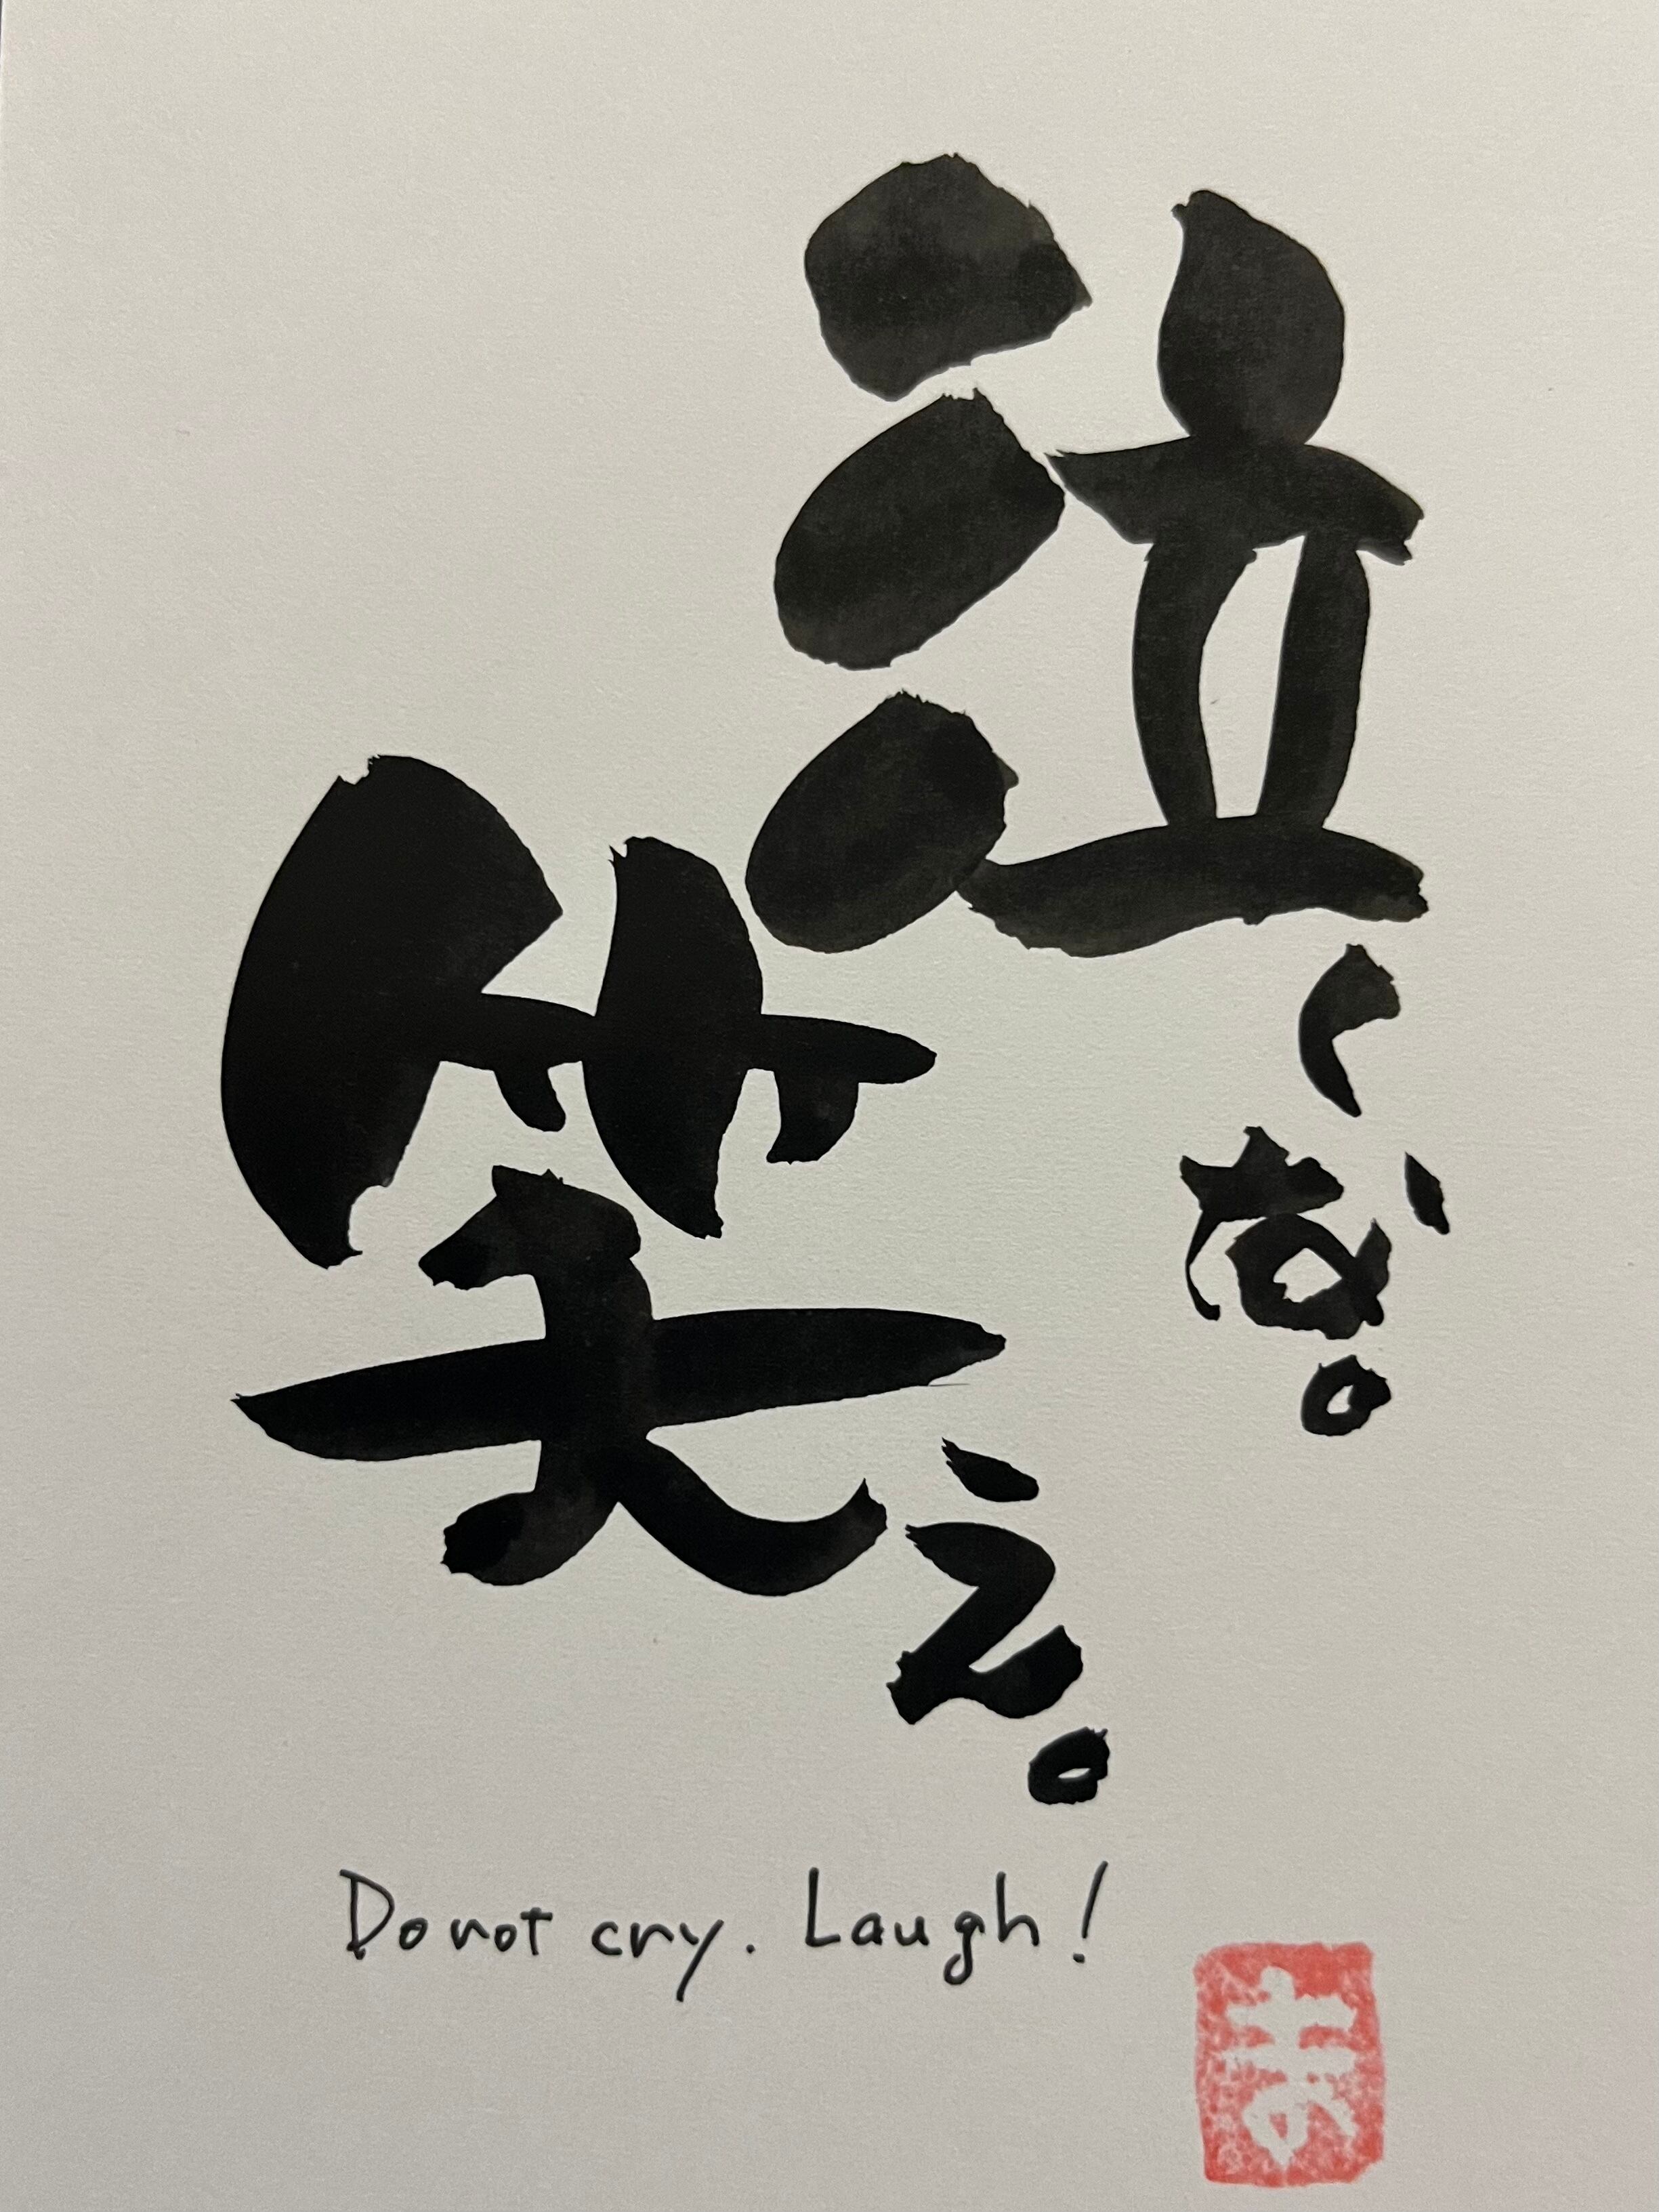 泣くな。
笑え。
Do not cry. Laugh!
ま